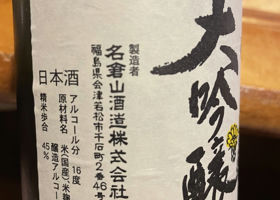 大吟醸
製造者
名倉山酒造株式会社
福島県会津若松市千石町2番46号
日本酒
アルコール分 16度
原材料名 米(国産)、米麹
醸造アルコー
精米歩合 45%